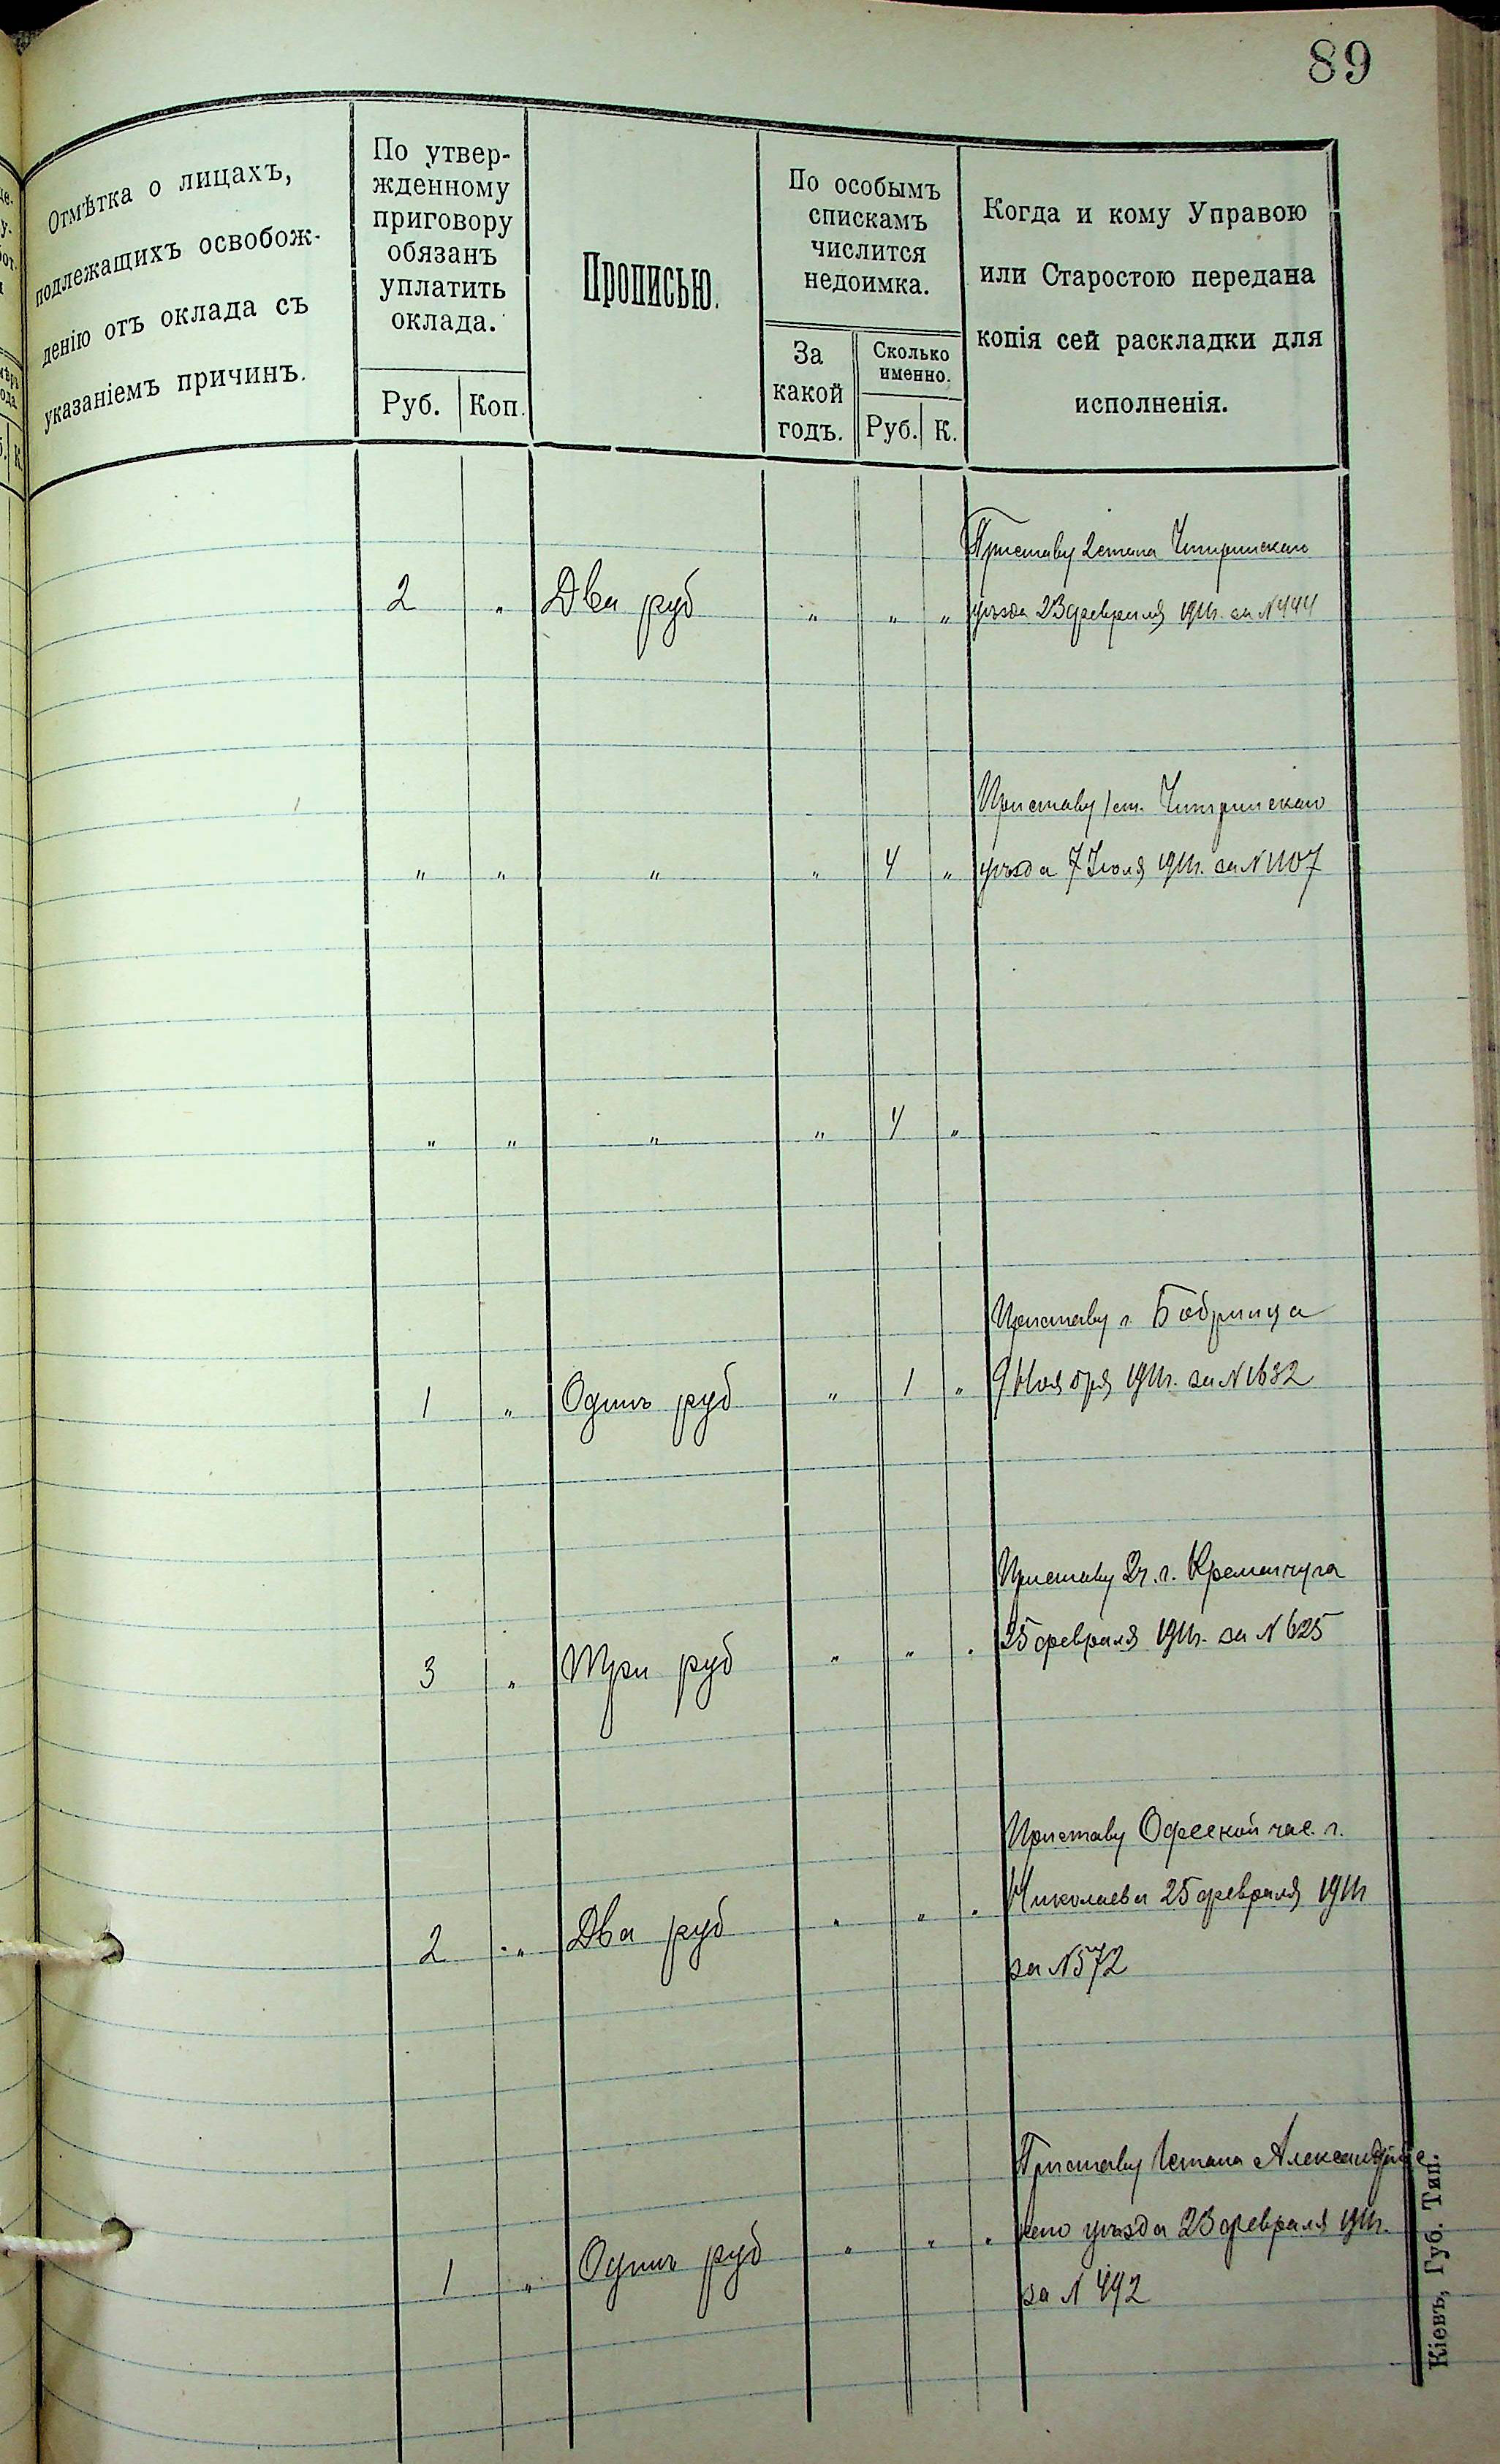 89
Отмѣтка о лицахъ,
подлежащихъ освобож-
денію отъ оклада съ
указаніемъ причинъ.
По утвер-
жденному
приговору
обязанъ
уплатить
оклада.
Руб. Коп.
Прописью.
По особымъ
спискамъ
числится
недоимка.
За
какой
годъ.
Сколько
именно.
Руб. К.
Когда и кому Управою
или Старостою передана
копія сей раскладки для
исполненія.
Приставу 2 стана Чигиринскаго
2 " Два руб " " " уѣзда 23 февраля 1911г. за N 444
Приставу 1 ст. Чигиринскаго
" " " " 4 " уѣзда 7 Іюля 1911г. за N 1107
" " " " 4 "
Приставу г. Бобринца
1 " Одинъ руб " 1 " 9 Ноября 1911г. за N 1632
Приставу 2ч. г. Кременчуга
3 " Три руб " " " 25 февраля 1911г. за N 625
Приставу Одесской час. г.
2 " Два руб " " " Николаева 25 февраля 1911
за N 572
Приставу 1 стана Александрійс
1 " Одинъ руб " " " каго уѣзда 23 февраля 1911г.
за N 492
Кіевъ, Губ. Тип.